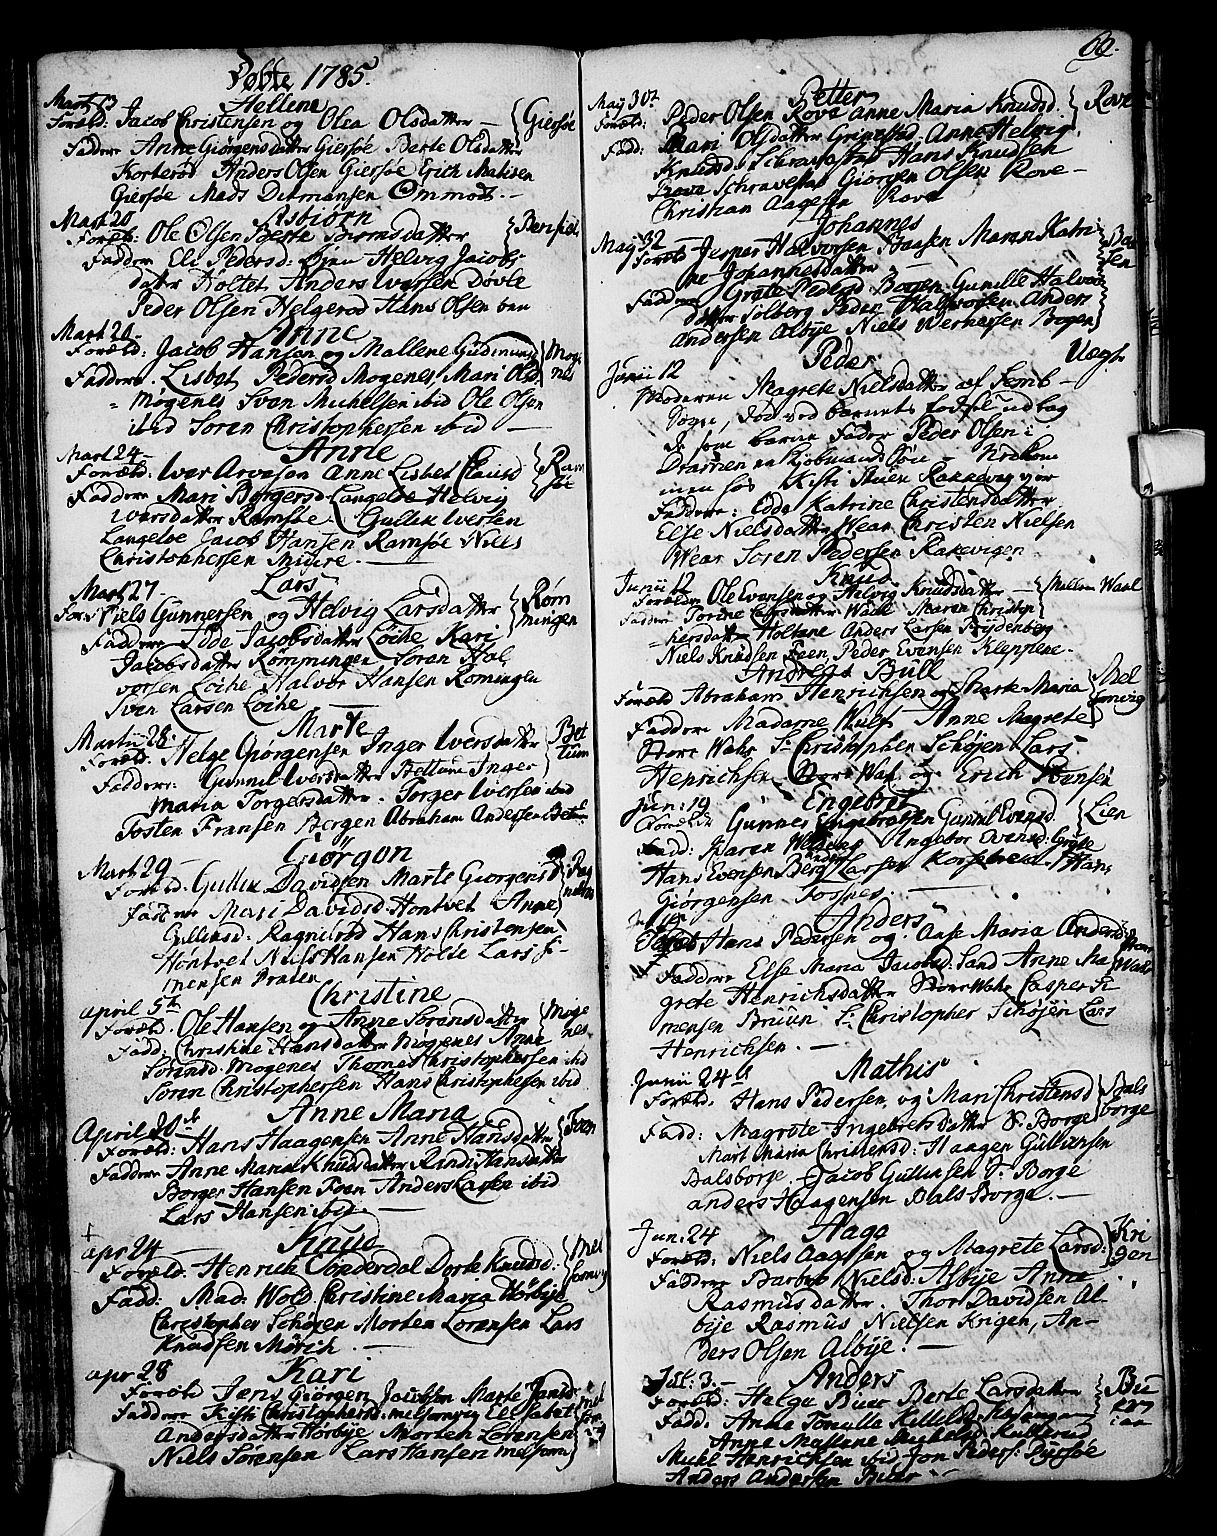 Døbte 1785.
Mart 13 Hellene
Foræld: Jacob Christensen og Olea Olsdatter — Giersøe
Faddere Anne Giørgensdatter Giersøe Berte Olsdatter
Korterød Anders Olsen Giersøe Erich Matisen
Giersøe Mads Ditmansen Ommods. —
Mart 20 Asbiørn
Foræld: Ole Olsen Berte Biørnsdatter
Faddere Eli Pedersd: Helvig Jacobs
datter Holtet Anders Iversen Døvle
Peder Olsen Helgerod Hans Olsen
Mart 20 — Anne
Foræld: Jacob Hansen og Mallene Gudmunds Moge nes
Faddere. Lisbet Pedersd Mogenes, Mari Olsd
Mogenes Sven Michelsen ibid Ole Olsen
ibid Soren Christophersen ibid —
Mart 24 — Anne
Foræld: Iver Arvesen Anne Lisbet Clausd Ram søe
Faddere Mari Borgersd: Langeløe Helvig
Iversdatter Ramsøe. Gullik Iversen
Langeløe Jacob Hansen Ramsøe Niels
Christophersen
Mart 27 — Lars
For: Niels Gunnersen og Helvig Larsdatter Røm mingen
Faddere Jacobsdatter Loche Kari
Jacobsdatter Rømmingen Soren Hal
vorsen Loche Halvor Hansen Romingen
Sven Larsen Loche —
Martii 28. Marte
Foræld. Helge Giørgensen Inger Iversdatter Bet tum
Faddere: Gunnil Iversdatter Bettum Inger
Maria Torgersdatter. Torger Iversen ibid
Tosten Fransen Bergen Abraham Andersen
Mart 29 — Giørgen
Foræld. Gullik Davidsen Marte Giørgensd
Faddere Mari Davidsd. Hontvet Anne
Gulliksd. Ragnilrød Hans Christensen
Hontvet Niels Hansen Holte Lars Si-
mensen
april 5te Christine
Foræld: Ole Hansen og Anne Sorensdatter Moge nes
Fadd. Christine Hansdatter Mogenes Anne
Sorensd. Mogenes Thomes Christophersen ibid
Soren Christophersen Hans Christophersen ibid
Anne Maria
April 20de
Foræld: Hans Haagensen Anne Hansdatter
Faddere Anne Maria Knudsdatter Randi Hansdatter
Borger Hansen Anders Larsen ibid
Lars Hansen ibid. —
apr 24 — Knud
Foræld: Henrich Sonderdal Dorte Knudsd: Mel somvig
Fadd: Mad: Wold Christine Maria Hørbye
Christopher Schøren Morten Lorensen Lars
Knudsen Mørich. —
apr 28 Kari
Foræld Jens Giørgen Jacobsen Marte Jansd Mel som vig
Faddere Kisti Christophersd: melsomvig Elisabet
Andersdatter Hørbye Morten Lorensen
Niels Sørensen Lars Hansen melsom
60.
May 30te Petter
Foræld: Peder Olsen Rove Anne Maria Knudsd. Rove
Fadd: Mari Olsdatter Grimestad. Anne Helvig
Knudsd. Schravestad Hans Knudsen
Schravestad Giorgen Olsen Rove —
Christian Aagesen Rove
Johannes
May 32 — Foræld Jesper Halvorsen Baasen Maren Katri Baa sen
ne Johannesdatter —
Faddere Grote Pedersd Borgen Gunille Halvor
datter Solberg Peder Halvorsen Anders
Andersen Albye Niels Wernersen Bogen
Peder Uægt
Junii 12 Moderen Magrete Nielsdatter af Semb —
Sogn, død ved barnets fødsel udlag
de som barne Fader Peder Olsen i
Drammen Kiøbmand
men hos Kisti Rakevag var
Faddere: Edde Katrine Christensdatter
Else Nielsdatter Wear Christen Nielsen
Wear Soren Pedersen Rakevigen.
Junii 12 Knud
Forældre Ole Evensen og Helvig Knudsdatter — Mellem Waal
Faddere Torine Larsdatter Waal Maren Christop
hersdatter Holtane Anders Larsen Brydenberg
Niels Knudsen Feen Peder Evensen Kleppene.
Andreas Bull
Foræld Abraham Henrichsen og Marte Maria Mel somvig
Faddere Madame Wulf Anne Magrete
Store Wahr Sr Christopher Schøjen Lars
Henrichsen Store Wal og Erich Svensen
Jun: 19 Engebret
Foreldre Gunnes Engebretsen Gunnil Evensd. Lien
Fadd: Karen Ingebor Evensd. Grøte
Hans Evensen Berg Larsen Korsgreen Hans
Giørgensen Fossnes. —
Anders
Foræld Hans Pedersen og Aase Maria Andersd: Stor Waal
Faddere Else Maria Jacobsd. Sand Anne Ma
grete Henrichsdatter Store Wahr Casper Si-
mensen Bruun Sr Christopher Schøjen Lars
Henrichsen. —
Junii 24de Mathis
Foræld: Hans Pedersen og Mari Christensd Bals borge
Fadd: Magrete Ingebretsdatter V. Borge
Mart Maria Christensd: Haagen Gullichsen
Balsborge. Jacob Gullichsen V. Borge
anders Haagensen Bals Borge. —
Jun: 24 Aage
Foræld: Niels Aagesen og Magrete Larsd: Kri gen
Faddere Barbro Nielsd: Albye Anne
Rasmusdatter. Thor Davidsen Al-
bye Rasmus Nielsen Krigen, An-
ders Olsen Albye. —
Jul: 3. — Anders
Foræld: Helge Buer Berte Larsdatter
Fadd: Anne Tomille Kittelsd.
Anne Mallene Michelsd
Mikel Henrichsen ibid Jon Peders:
Anders Andersen Buer —